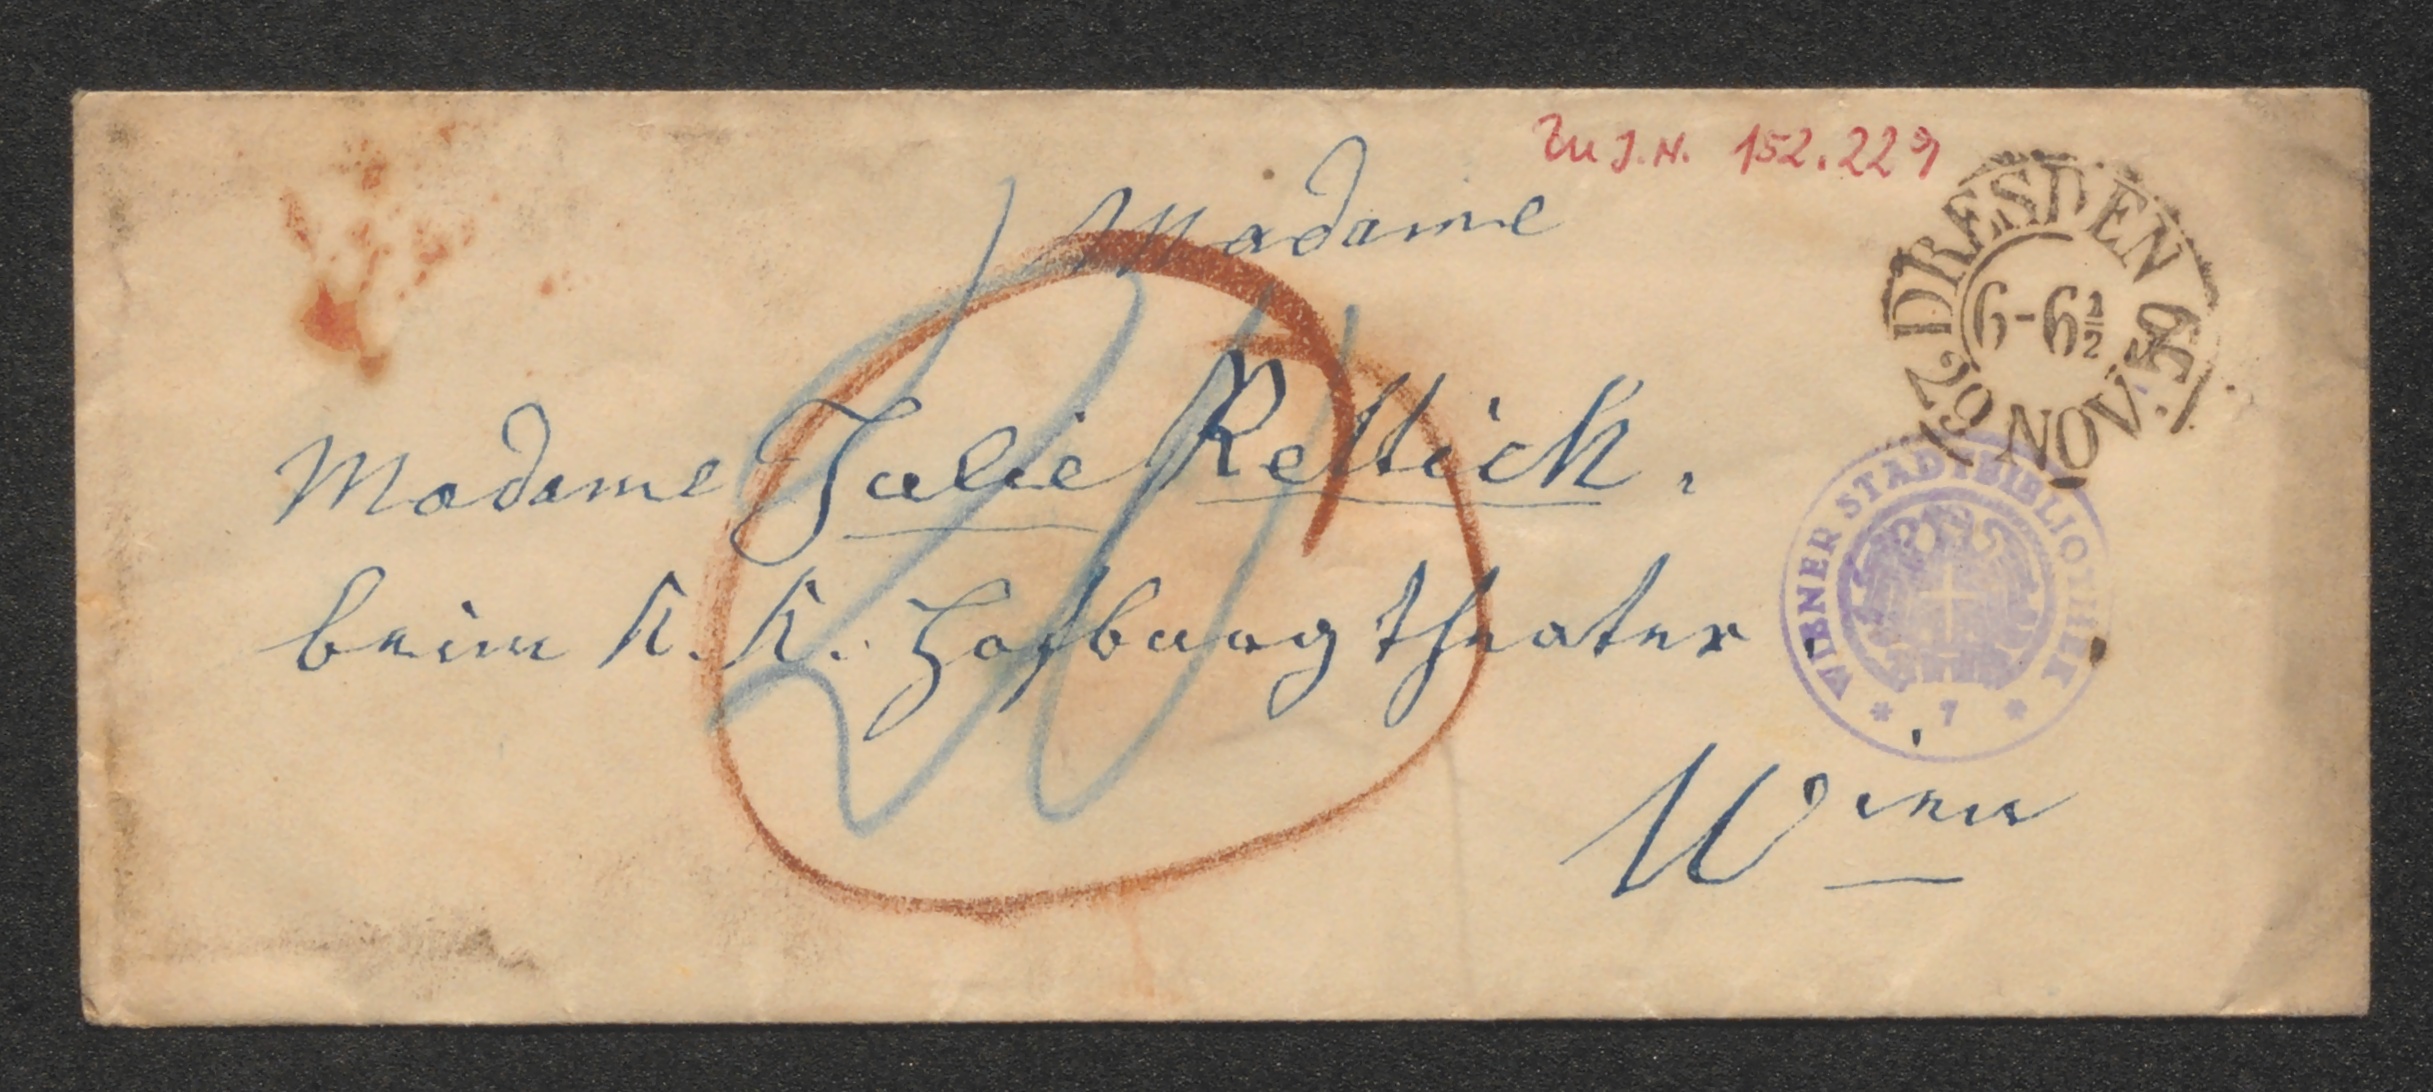 Zu J.N. 152.229
Madame
DRESDEN
6-6½
29 NOV.
Madame Julie Rettich.
beim K. K. Hofburgtheater
WIENER STADTBIBLIOTHEK
* 7 *
Wien
20